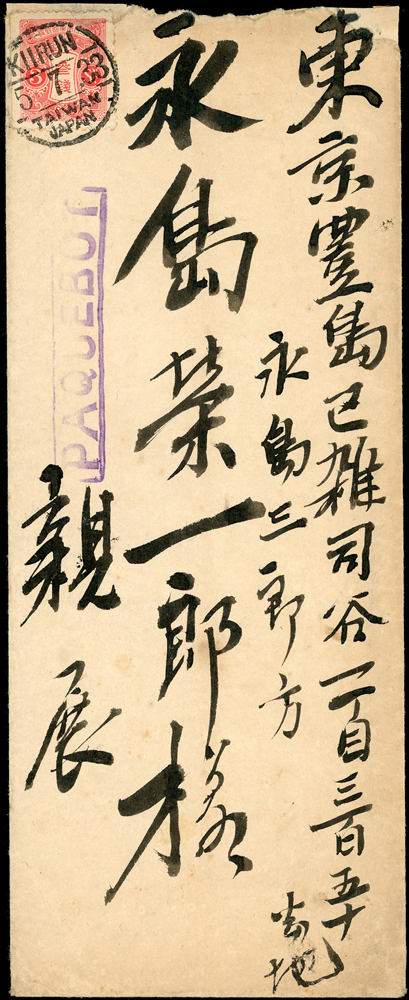 東京豊島区雑司谷一丁目三百五十番地
永島三郎方
永島栄一郎様
親展
PAQUEBOT
KIIRUN
TAIWAN
JAPAN